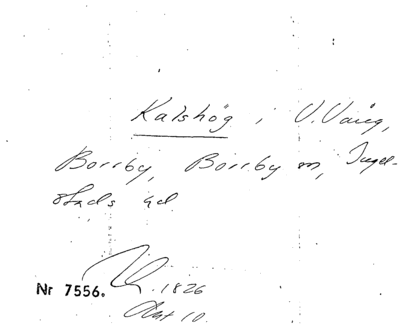 Kalshög, V. Vång,
Borrby, Borrby sn, Ingel-
stads hd
Nr 7556. 1826
Akt 10.